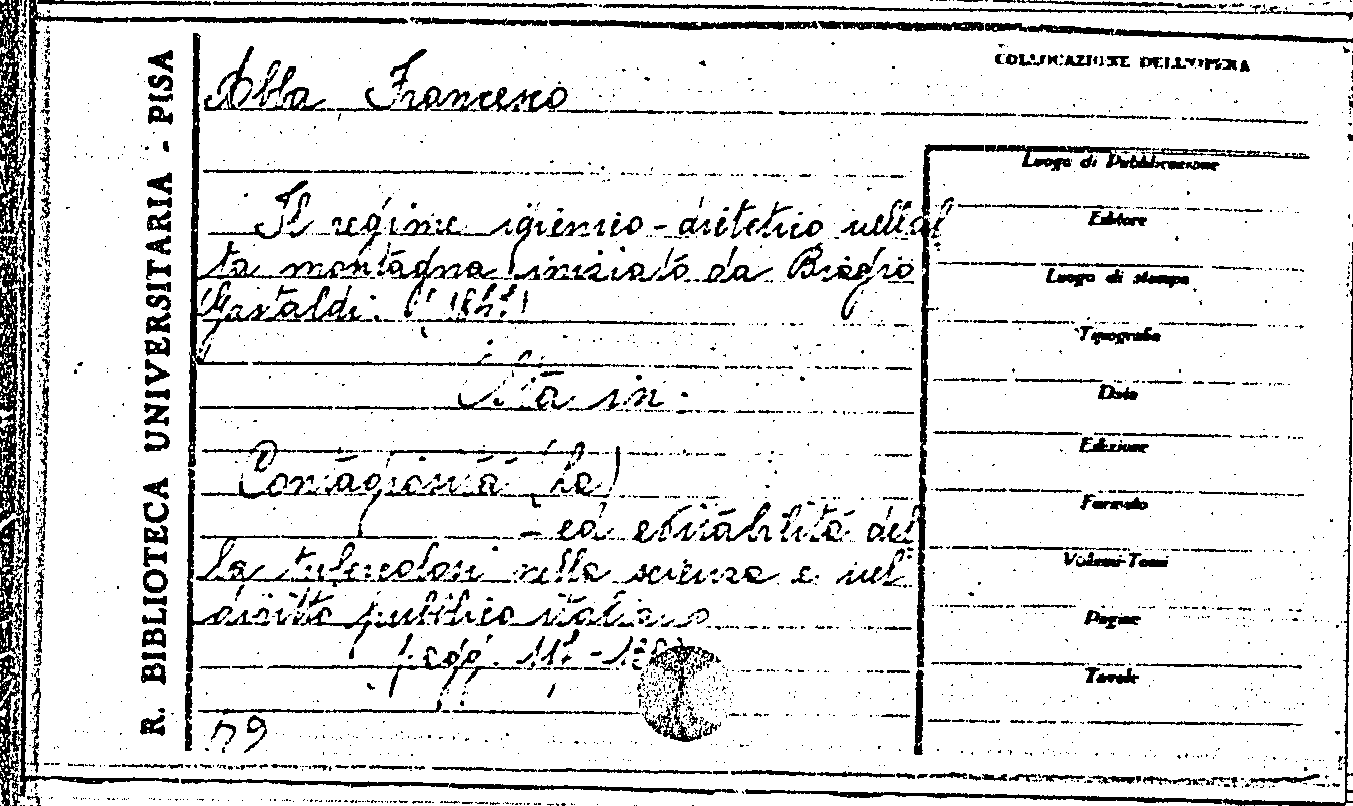 R. BIBLIOTECA UNIVERSITARIA - PISA
COLLOCAZIONE DELL'OPERA
Abba Francesco
Il regime igienico-dietetico nellal
ta montagna iniziato da Biagio
Gastaldi.
Sta in.
Contagiosità (La)
- ed evitabilità del
la tubercolosi nella scienza e nel
diritto pubblico italiano
pagg.
79
Luogo di Pubblicazione
Editore
Luogo di stampa
Tipografia
Data
Edizione
Formato
Volumi-Tomi
Pagine
Tavole